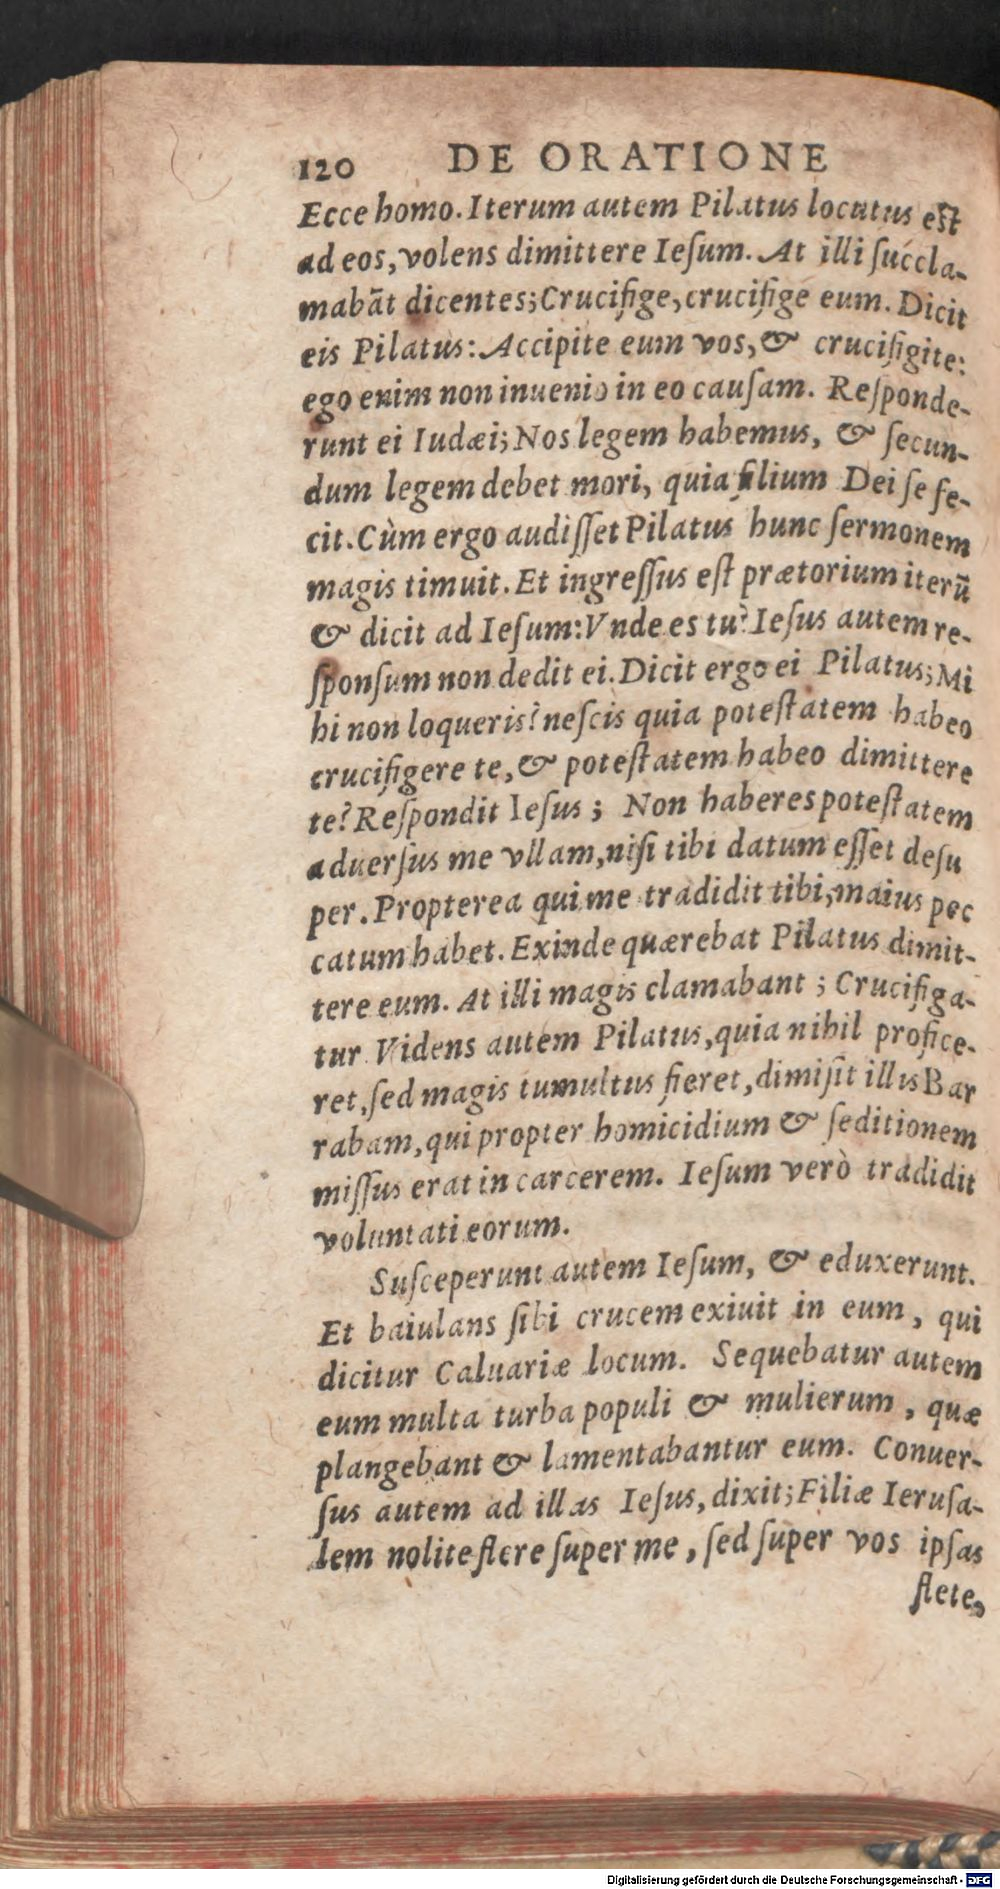 120 DE ORATIONE
Ecce homo. Iterum autem Pilatus locutus eſt
ad eos, volens dimittere Ieſum. At illi ſuccla-
mabāt dicentes; Crucifige, crucifige eum. Dicit
eis Pilatus: Accipite eum vos, & crucifigite:
ego enim non inuenio in eo cauſam. Reſponde-
runt ei Iudæi; Nos legem habemus, & ſecun-
dum legem debet mori, quia filium Dei ſe fe-
cit. Cùm ergo audiſſet Pilatus hunc ſermonem
magis timuit. Et ingreſſus eſt prætorium iterū
& dicit ad Ieſum: Vnde es tu? Ieſus autem re-
ſponſum non dedit ei. Dicit ergo ei Pilatus; Mi
hi non loqueris? neſcis quia poteſtatem habeo
crucifigere te, & poteſtatem habeo dimittere
te? Reſpondit Ieſus; Non haberes poteſtatem
aduerſus me vllam, niſi tibi datum eſſet deſu
per. Propterea qui me tradidit tibi, maius pec
catum habet. Exinde quærebat Pilatus dimit-
tere eum. At illi magis clamabant; Crucifiga-
tur Videns autem Pilatus, quia nihil profice-
ret, ſed magis tumultus fieret, dimiſit illis Bar
rabam, qui propter homicidium & ſeditionem
miſſus erat in carcerem. Ieſum verò tradidit
voluntati eorum.
Suſceperunt autem Ieſum, & eduxerunt.
Et baiulans ſibi crucem exiuit in eum, qui
dicitur Caluariæ locum. Sequebatur autem
eum multa turba populi & mulierum, quæ
plangebant & lamentabantur eum. Conuer-
ſus autem ad illas Ieſus, dixit; Filiæ Ieruſa-
lem nolite flere ſuper me, ſed ſuper vos ipſas
flete,
Digitalisierung gefördert durch die Deutsche Forschungsgemeinschaft - DFG